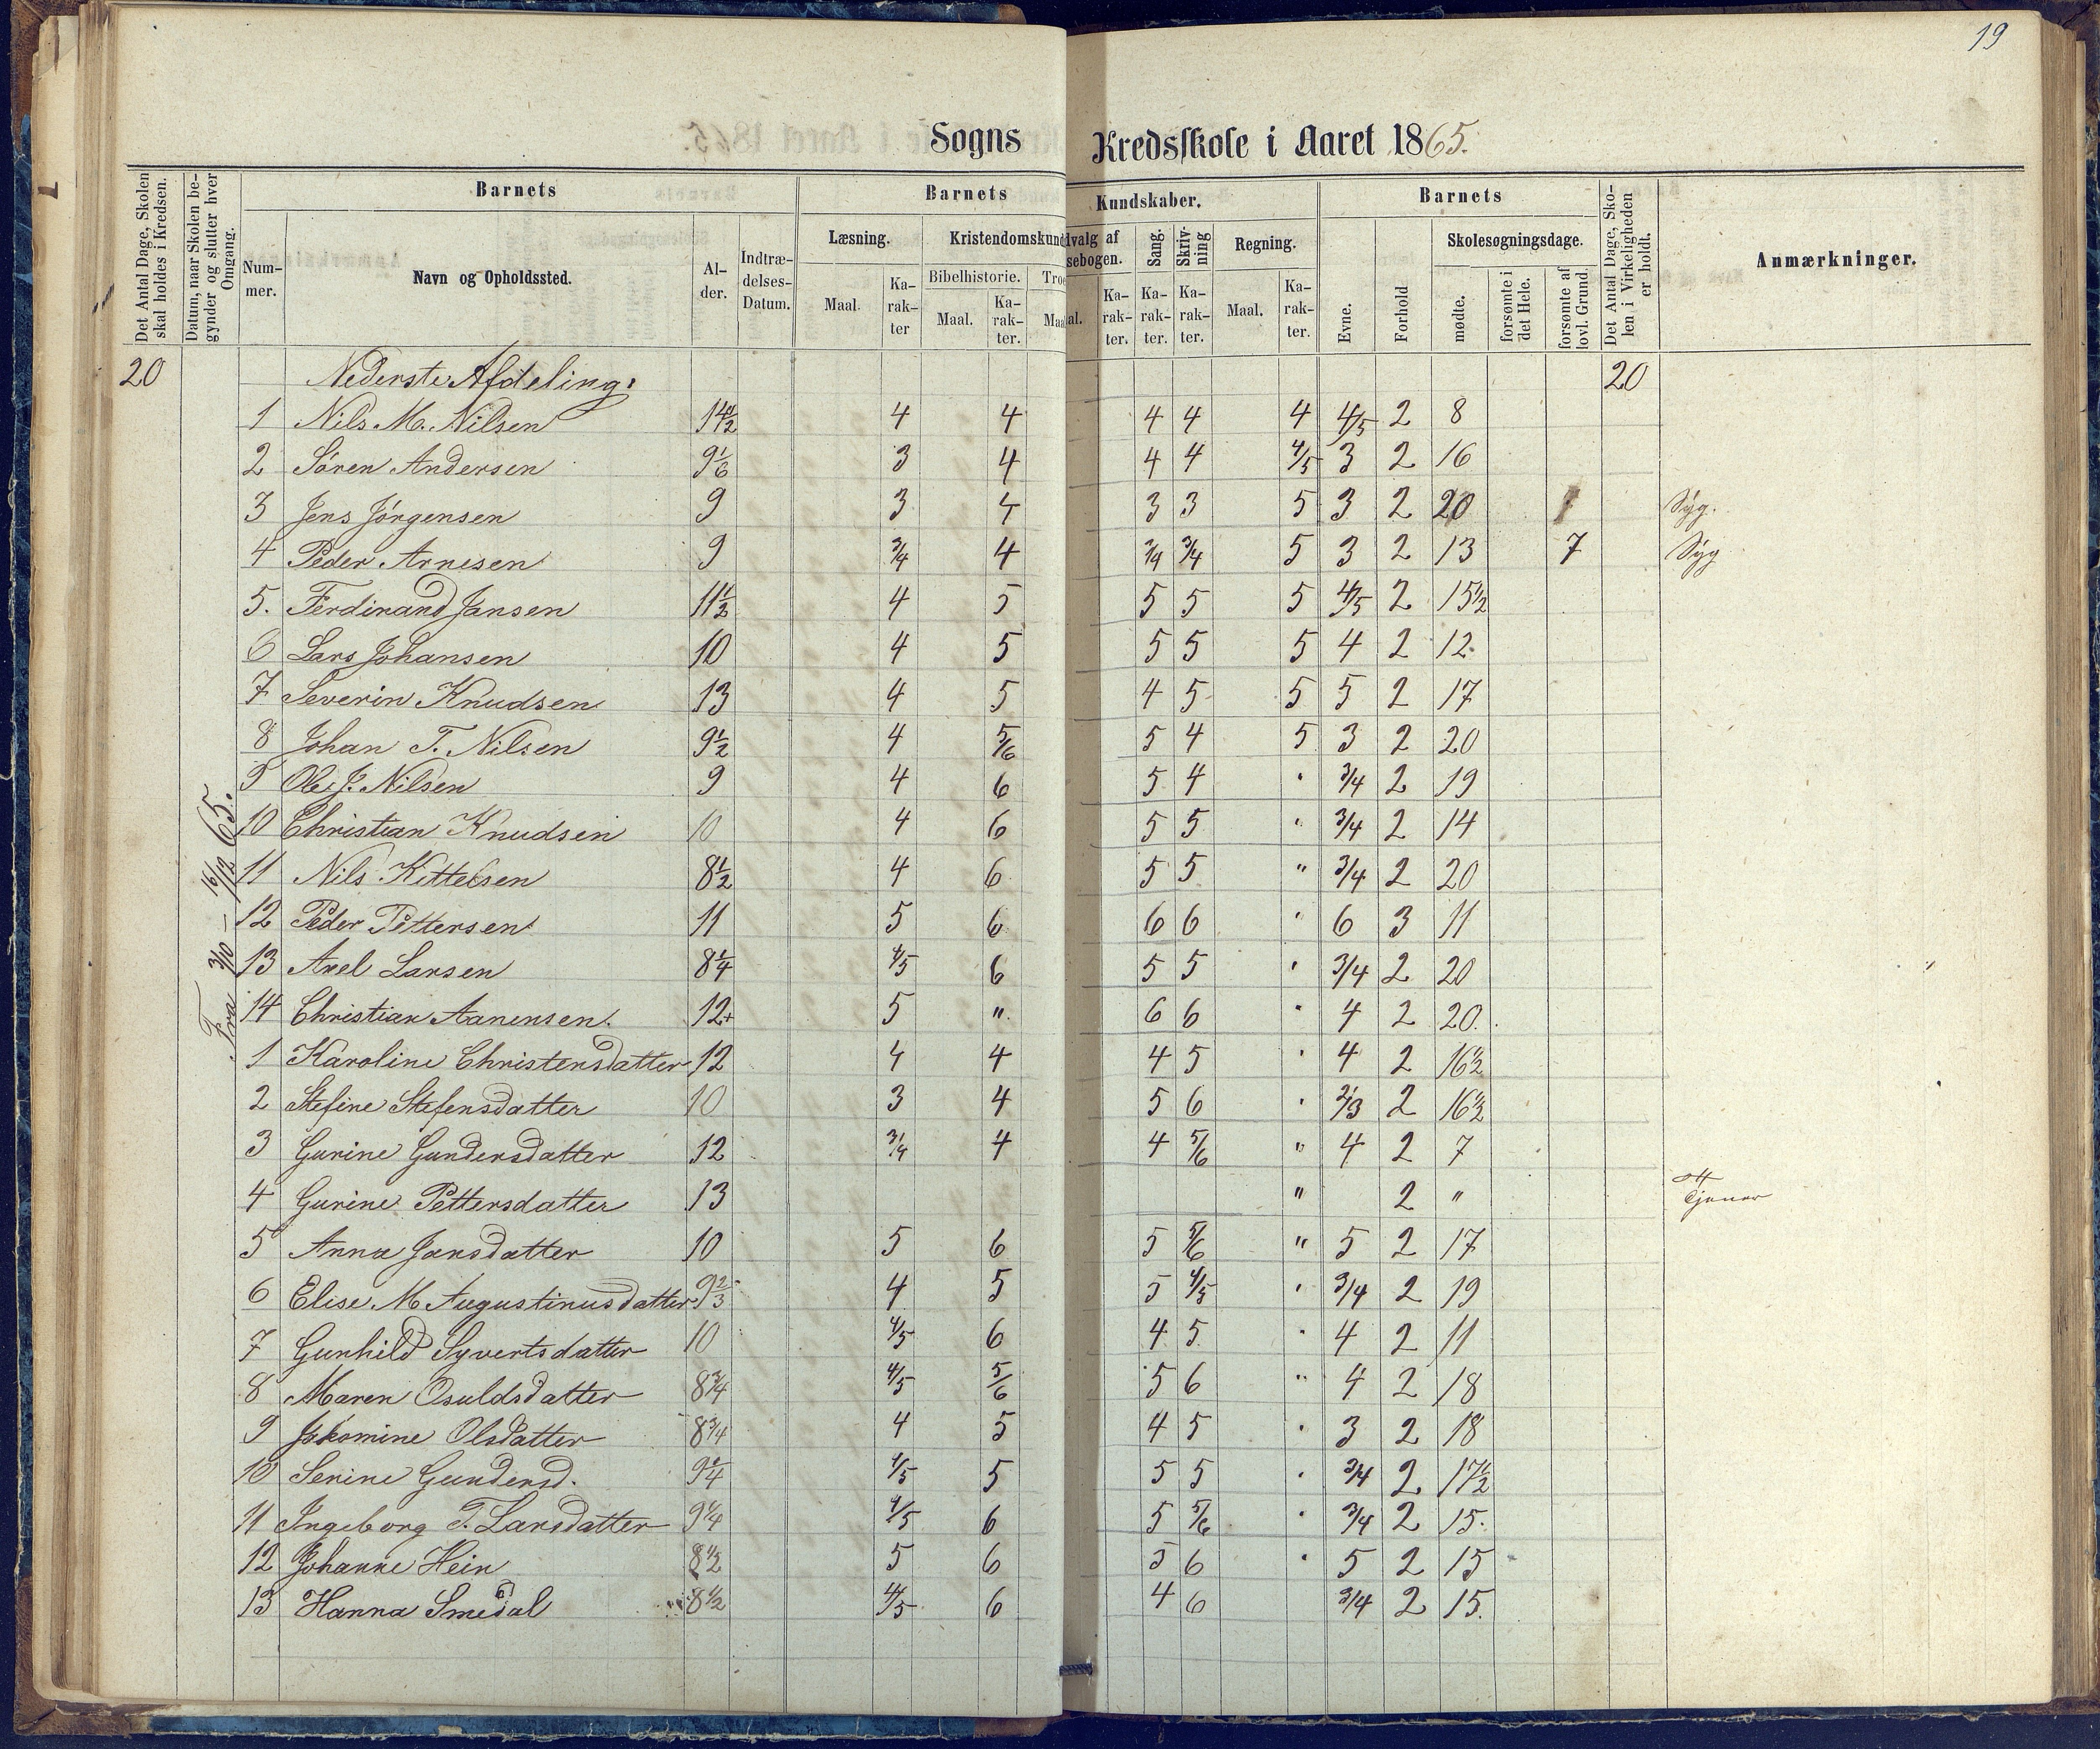 19
Sogns Kredsskole i Aaret 1865.
Det Antal Dage, Skolen skal holdes i Kredsen.
Datum, naar Skolen begynder og slutter hver Omgang.
Barnets
Num-mer.
Navn og Opholdssted.
Al-der.
Indtræ-delses-Datum.
Barnets Kundskaber.
Læsning.
Maal.
Ka-rak-ter
Kristendomskund
Bibelhistorie.
Maal.
Ka-rak-ter.
Troe
Maal.
dvalg af
sebogen.
Ka-rak-ter.
Sang.
Ka-rak-ter.
Skriv-ning
Ka-rak-ter.
Regning.
Maal.
Ka-rak-ter.
Barnets
Evne.
Forhold
Skolesøgningsdage.
mødte.
forsømte i det Hele.
forsømte af lovl. Grund.
Det Antal Dage, Sko-len i Virkeligheden er holdt.
Anmærkninger.
20 Nederste Afdeling: 20
Fra 3/10 – 16/12 65.
1 Nils M. Nilsen 14 1/2 4 4 4 4 4 4/5 2 8
2 Sören Andersen 9 1/6 3 4 4 4 4/5 3 2 16
3 Jens Jörgensen 9 3 4 3 3 5 3 2 20 Syg.
4 Peder Arnesen 9 3/4 4 3/4 3/4 5 3 2 13 7 Syg
5. Ferdinand Jansen 11 1/2 4 5 5 5 5 4/5 2 15 1/2
6 Lars Johansen 10 4 5 5 5 5 4 2 12
7 Severin Knudsen 13 4 5 4 5 5 5 2 17
8 Johan T. Nilsen 9 1/2 4 5/6 5 4 5 3 2 20
9 Ole J. Nilsen 9 4 6 5 4 " 3/4 2 19
10 Christian Knudsen 10 4 6 5 5 " 3/4 2 14
11 Nils Kittelsen 8 1/2 4 6 5 5 " 3/4 2 20
12 Peder Pettersen 11 5 6 6 6 " 6 3 11
13 Axel Larsen 8 1/4 4/5 6 5 5 " 3/4 2 20
14 Christian Aanensen. 12+ 5 " 6 6 " 4 2 20.
1 Karoline Christensdatter 12 4 4 4 5 " 4 2 16 1/2
2 Stefine Stefensdatter 10 3 4 5 6 " 2/3 2 16 1/2
3 Gurine Gundersdatter 12 3/4 4 4 5/6 " 4 2 7
4 Gurine Pettersdatter 13 " 2 " Tjener
5 Anna Jansdatter 10 5 6 5 5/6 " 5 2 17
6 Elise M Augustinusdatter 9 2/3 4 5 5 4/5 " 3/4 2 19
7 Gunhild Syvertsdatter 10 4/5 6 4 5 " 4 2 11
8 Maren Osuldsdatter 8 3/4 4/5 5/6 5 6 " 4 2 18
9 Jakomine Olsdatter 8 3/4 4 5 4 5 " 3 2 18
10 Serine Gundersd. 9 1/4 4/5 5 5 5 " 3/4 2 17 1/2
11 Ingeborg T. Larsdatter 9 1/4 4/5 6 5 5/6 " 3/4 2 15.
12 Johanne Hein 8 1/2 5 6 5 6 " 5 2 15
13 Hanna Smedal 8 1/2 4/5 6 4 6 3/4 2 15.